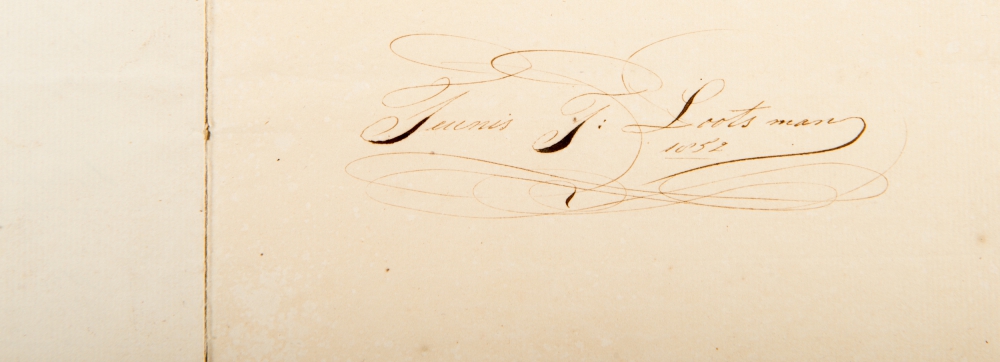 Teunis T: Lootsman
1852